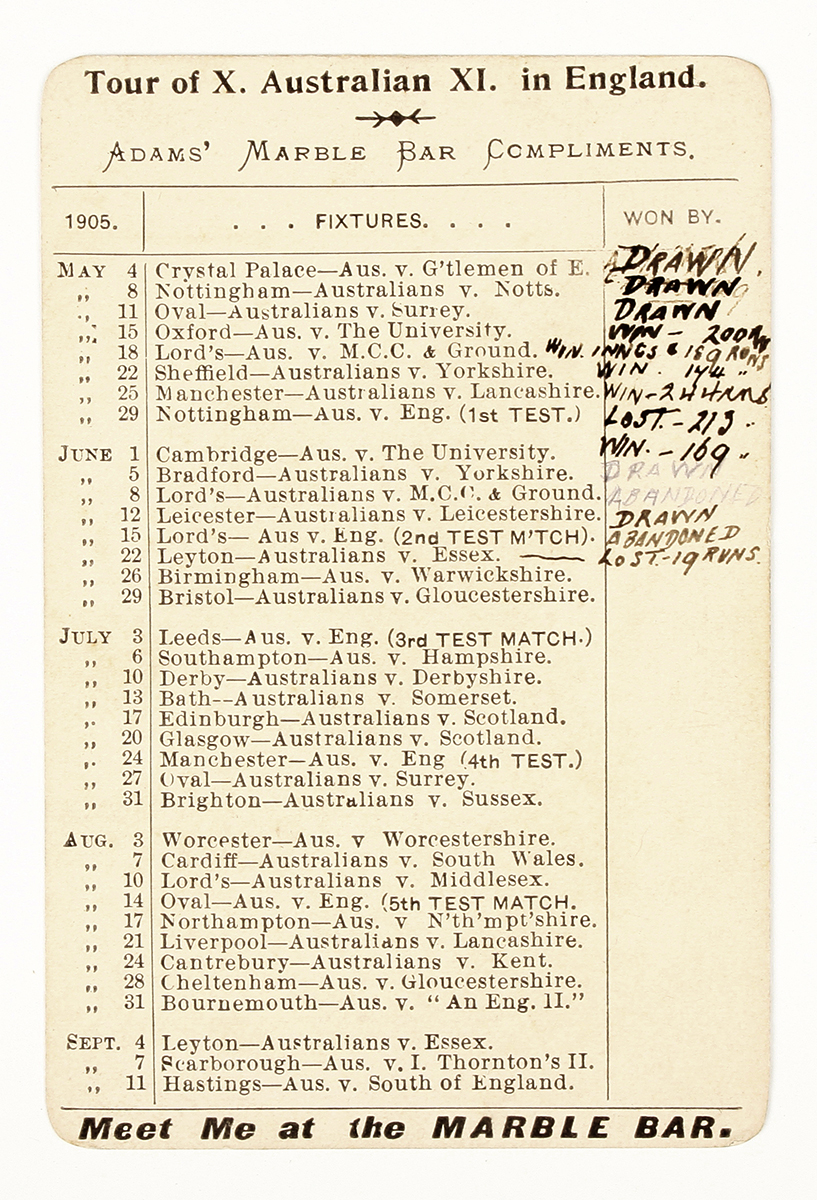 Tour of X. Australian XI. in England.
ADAMS' MARBLE BAR COMPLIMENTS.
1905. . . . FIXTURES. . . . WON BY.
MAY 4 Crystal Palace—Aus. v. G'tlemen of E. DRAWN.
„ 8 Nottingham—Australians v. Notts. DRAWN
„ 11 Oval—Australians v. Surrey. DRAWN
„ 15 Oxford—Aus. v. The University. WIN - 200
„ 18 Lord's—Aus. v. M.C.C. & Ground. WIN. INNGS & 189 RUNS
„ 22 Sheffield—Australians v. Yorkshire. WIN. 174 "
„ 25 Manchester—Australians v. Lancashire. WIN - 244 RNS
„ 29 Nottingham—Aus. v. Eng. (1st TEST.) LOST. - 213 "
JUNE 1 Cambridge—Aus. v. The University. WIN. - 169 "
„ 5 Bradford—Australians v. Yorkshire. DRAWN
„ 8 Lord's—Australians v. M.C.C. & Ground. ABANDONED
„ 12 Leicester—Australians v. Leicestershire. DRAWN
„ 15 Lord's— Aus v. Eng. (2nd TEST M'TCH). ABANDONED
„ 22 Leyton—Australians v. Essex. —— LOST. - 19 RUNS.
„ 26 Birmingham—Aus. v. Warwickshire.
„ 29 Bristol—Australians v. Gloucestershire.
JULY 3 Leeds—Aus. v. Eng. (3rd TEST MATCH.)
„ 6 Southampton—Aus. v. Hampshire.
„ 10 Derby—Australians v. Derbyshire.
„ 13 Bath--Australians v. Somerset.
„ 17 Edinburgh—Australians v. Scotland.
„ 20 Glasgow—Australians v. Scotland.
„ 24 Manchester—Aus. v. Eng (4th TEST.)
„ 27 Oval—Australians v. Surrey.
„ 31 Brighton—Australians v. Sussex.
AUG. 3 Worcester—Aus. v Worcestershire.
„ 7 Cardiff—Australians v. South Wales.
„ 10 Lord's—Australians v. Middlesex.
„ 14 Oval—Aus. v. Eng. (5th TEST MATCH.
„ 17 Northampton—Aus. v N'th'mpt'shire.
„ 21 Liverpool—Australians v. Lancashire.
„ 24 Cantrebury—Australians v. Kent.
„ 28 Cheltenham—Aus. v. Gloucestershire.
„ 31 Bournemouth—Aus. v. “ An Eng. II.”
SEPT. 4 Leyton—Australians v. Essex.
„ 7 Scarborough—Aus. v. I. Thornton's II.
„ 11 Hastings—Aus. v. South of England.
Meet Me at the MARBLE BAR.